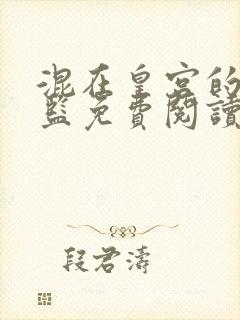 混在皇宮的
監免費閱讀
段君濤